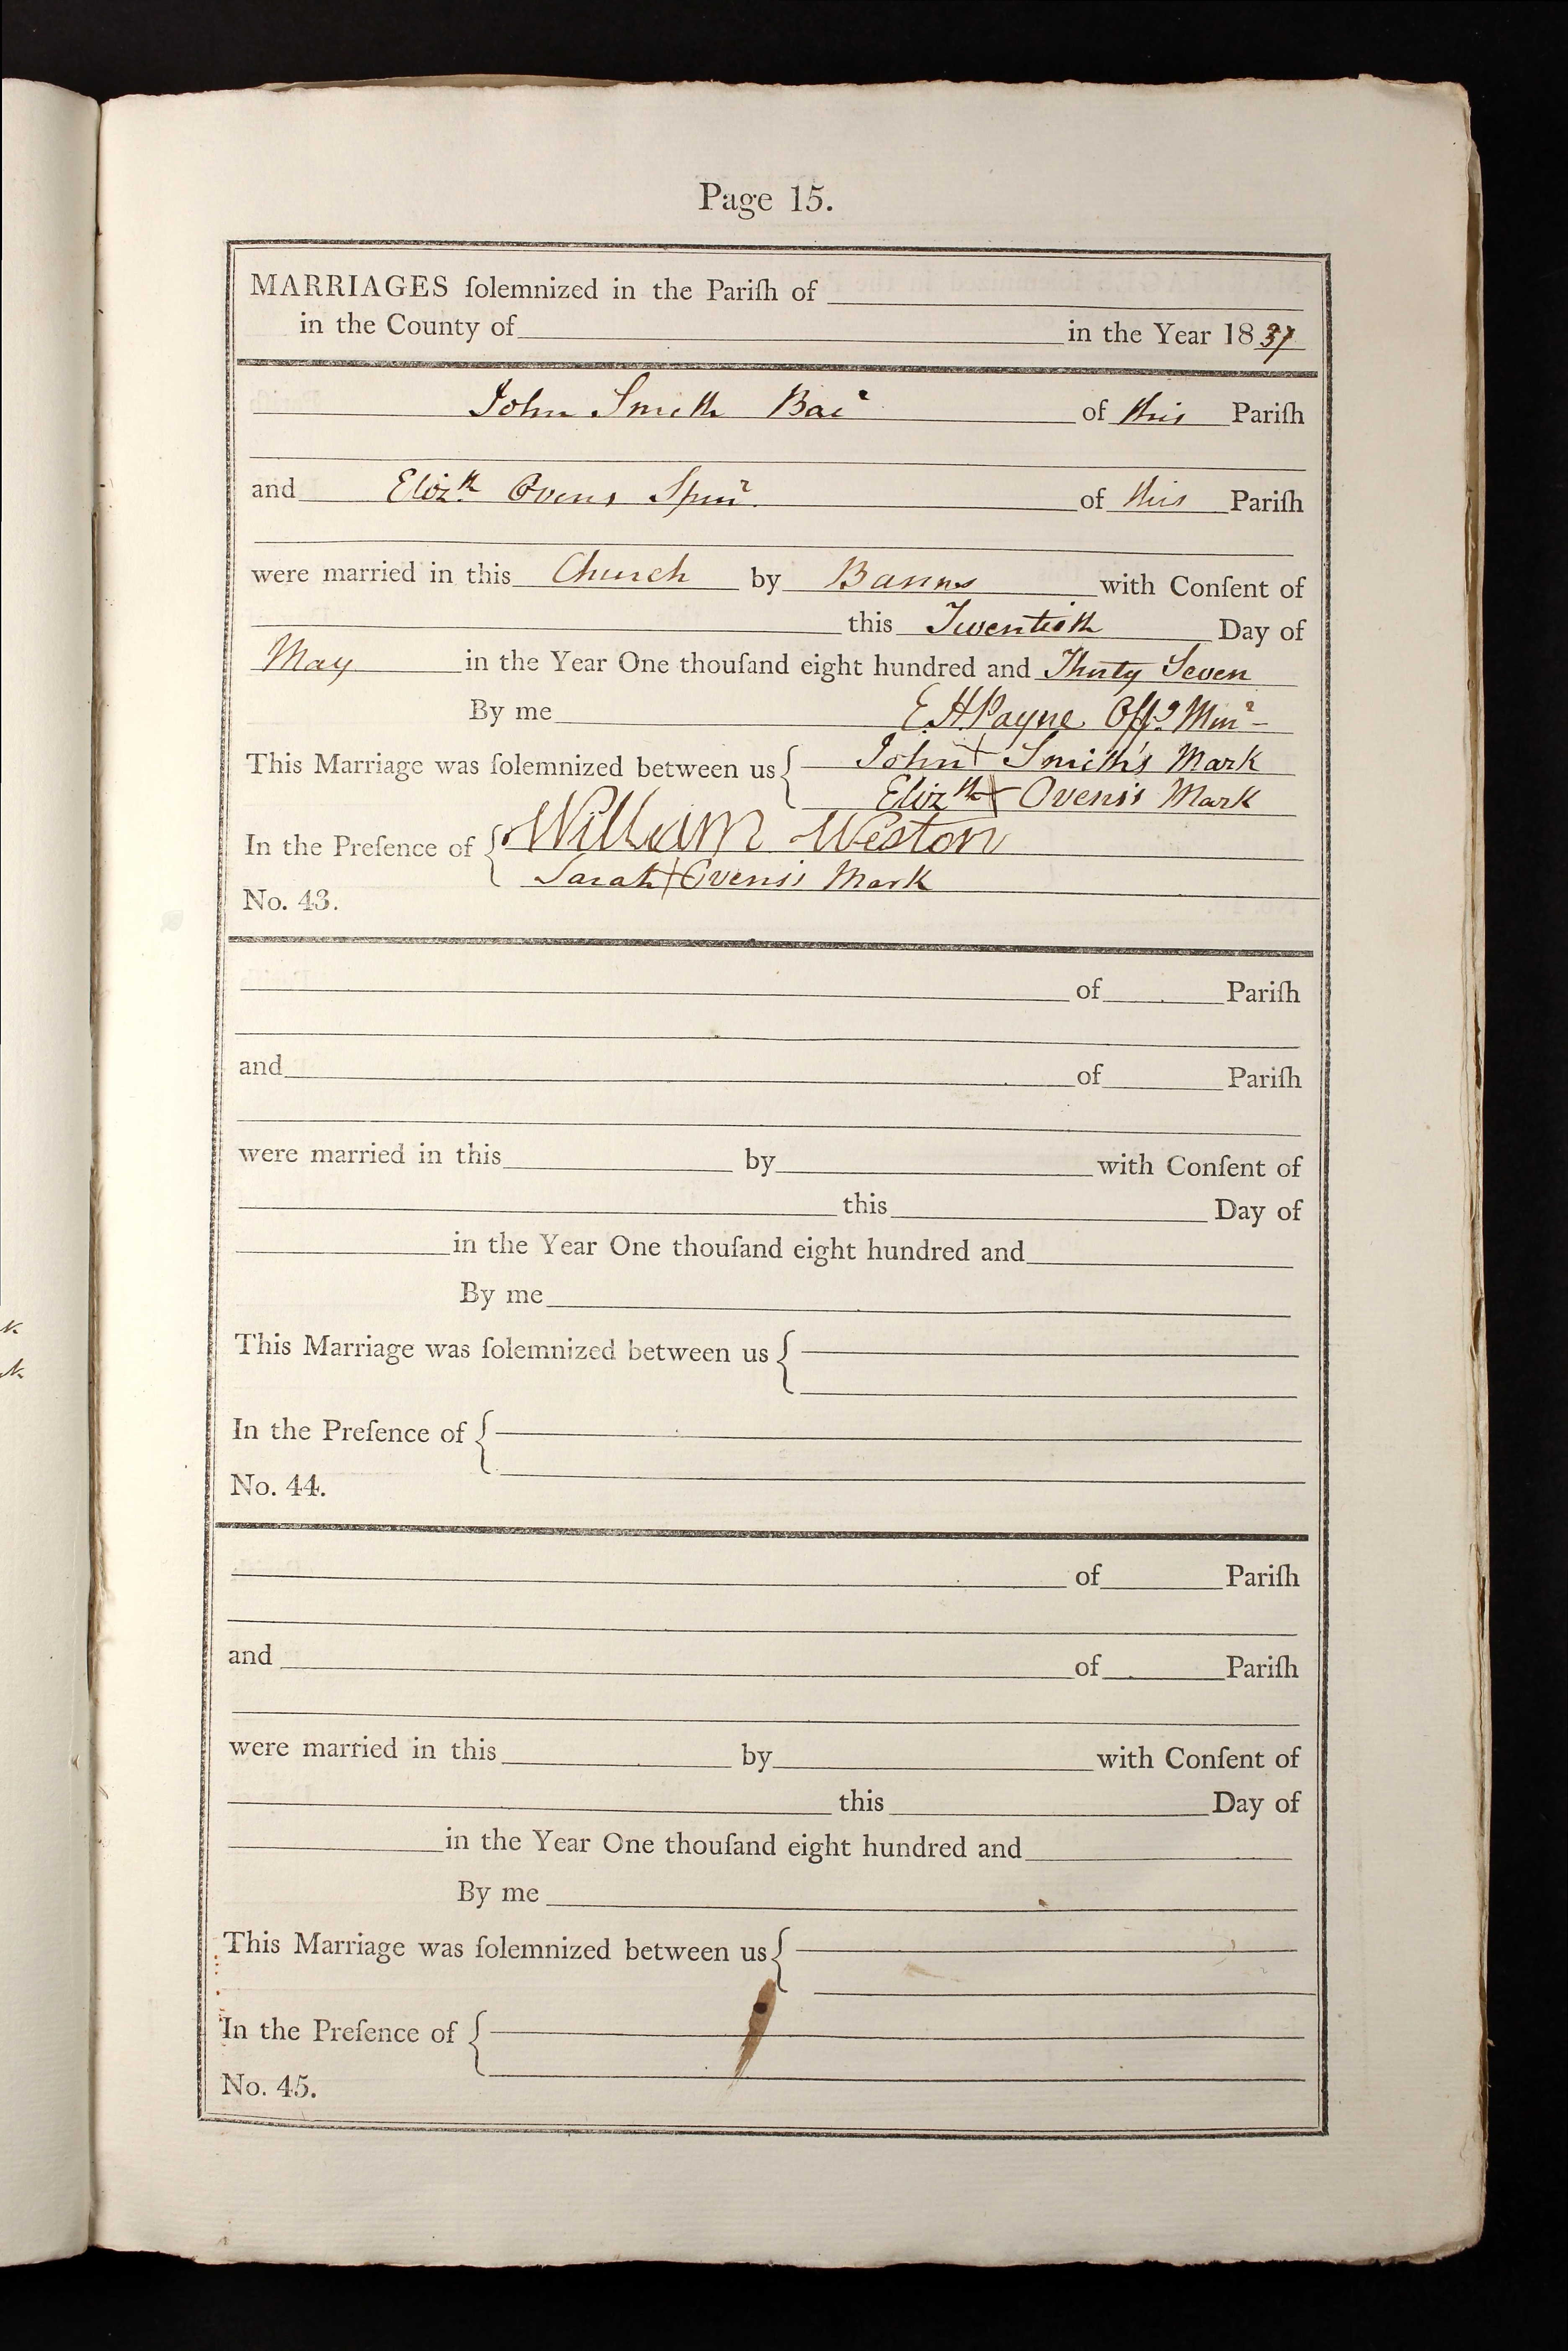 Page 15.
MARRIAGES ſolemnized in the Pariſh of
in the County of in the Year 1837
John Smith Bacr of this Pariſh
and Elizth Ovens Spinr. of this Pariſh
were married in this Church by Banns with Conſent of
this Twentieth Day of
May in the Year One thouſand eight hundred and Thirty Seven
By me E. H. Payne Offg Minr
This Marriage was ſolemnized between us { John + Smith's Mark
Elizth + Ovens's Mark
In the Preſence of { William Weston
Sarah + Ovens's Mark
No. 43.
of Pariſh
and of Pariſh
were married in this by with Conſent of
this Day of
in the Year One thouſand eight hundred and
By me
This Marriage was ſolemnized between us {
In the Preſence of {
No. 44.
of Pariſh
and of Pariſh
were married in this by with Conſent of
this Day of
in the Year One thouſand eight hundred and
By me
This Marriage was ſolemnized between us {
In the Preſence of {
No. 45.